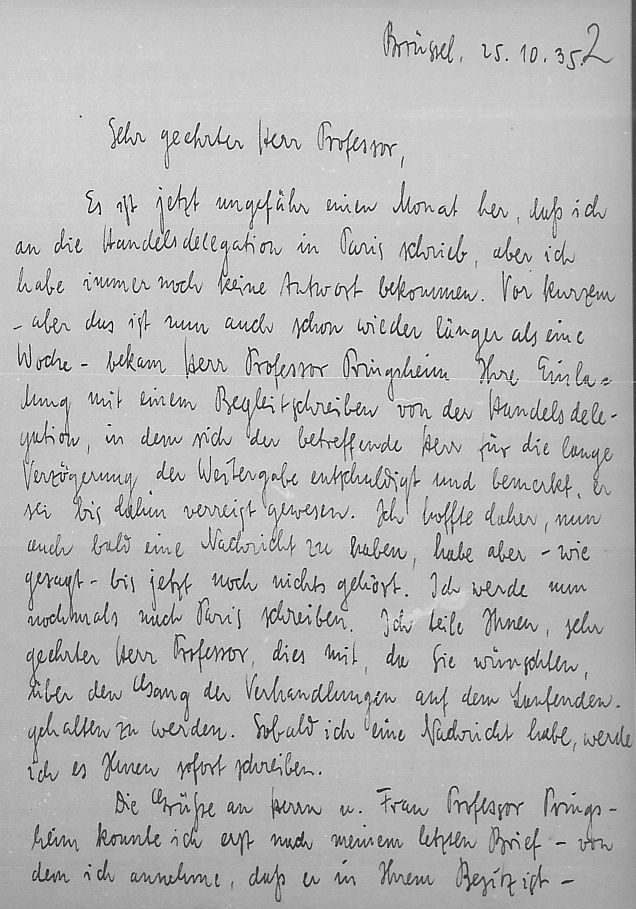 Brüssel, 25. 10. 35. 2
Sehr geehrter Herr Professor,
Es ist jetzt ungefähr einen Monat her, daß ich
an die Handelsdelegation in Paris schrieb, aber ich
habe immer noch keine Antwort bekommen. Vor kurzem
- aber das ist nun auch schon wieder länger als eine
Woche - bekam Herr Professor Pringsheim Ihre Einla=
dung mit einem Begleitschreiben von der Handelsdele-
gation, in dem sich der betreffende Herr für die lange
Verzögerung der Weitergabe entschuldigt und bemerkt, er
sei bis dahin verreist gewesen. Ich hoffte daher, nun
auch bald eine Nachricht zu haben, habe aber - wie
gesagt - bis jetzt noch nichts gehört. Ich werde nun
nochmals nach Paris schreiben. Ich teile Ihnen, sehr
geehrter Herr Professor, dies mit, da Sie wünschten,
über den Gang der Verhandlungen auf dem Laufenden
gehalten zu werden. Sobald ich eine Nachricht habe, werde
ich es Ihnen sofort schreiben.
Die Grüße an Herrn u. Frau Professor Prings-
heim konnte ich erst nach meinem letzten Brief - von
dem ich annehme, daß er in Ihrem Besitz ist -